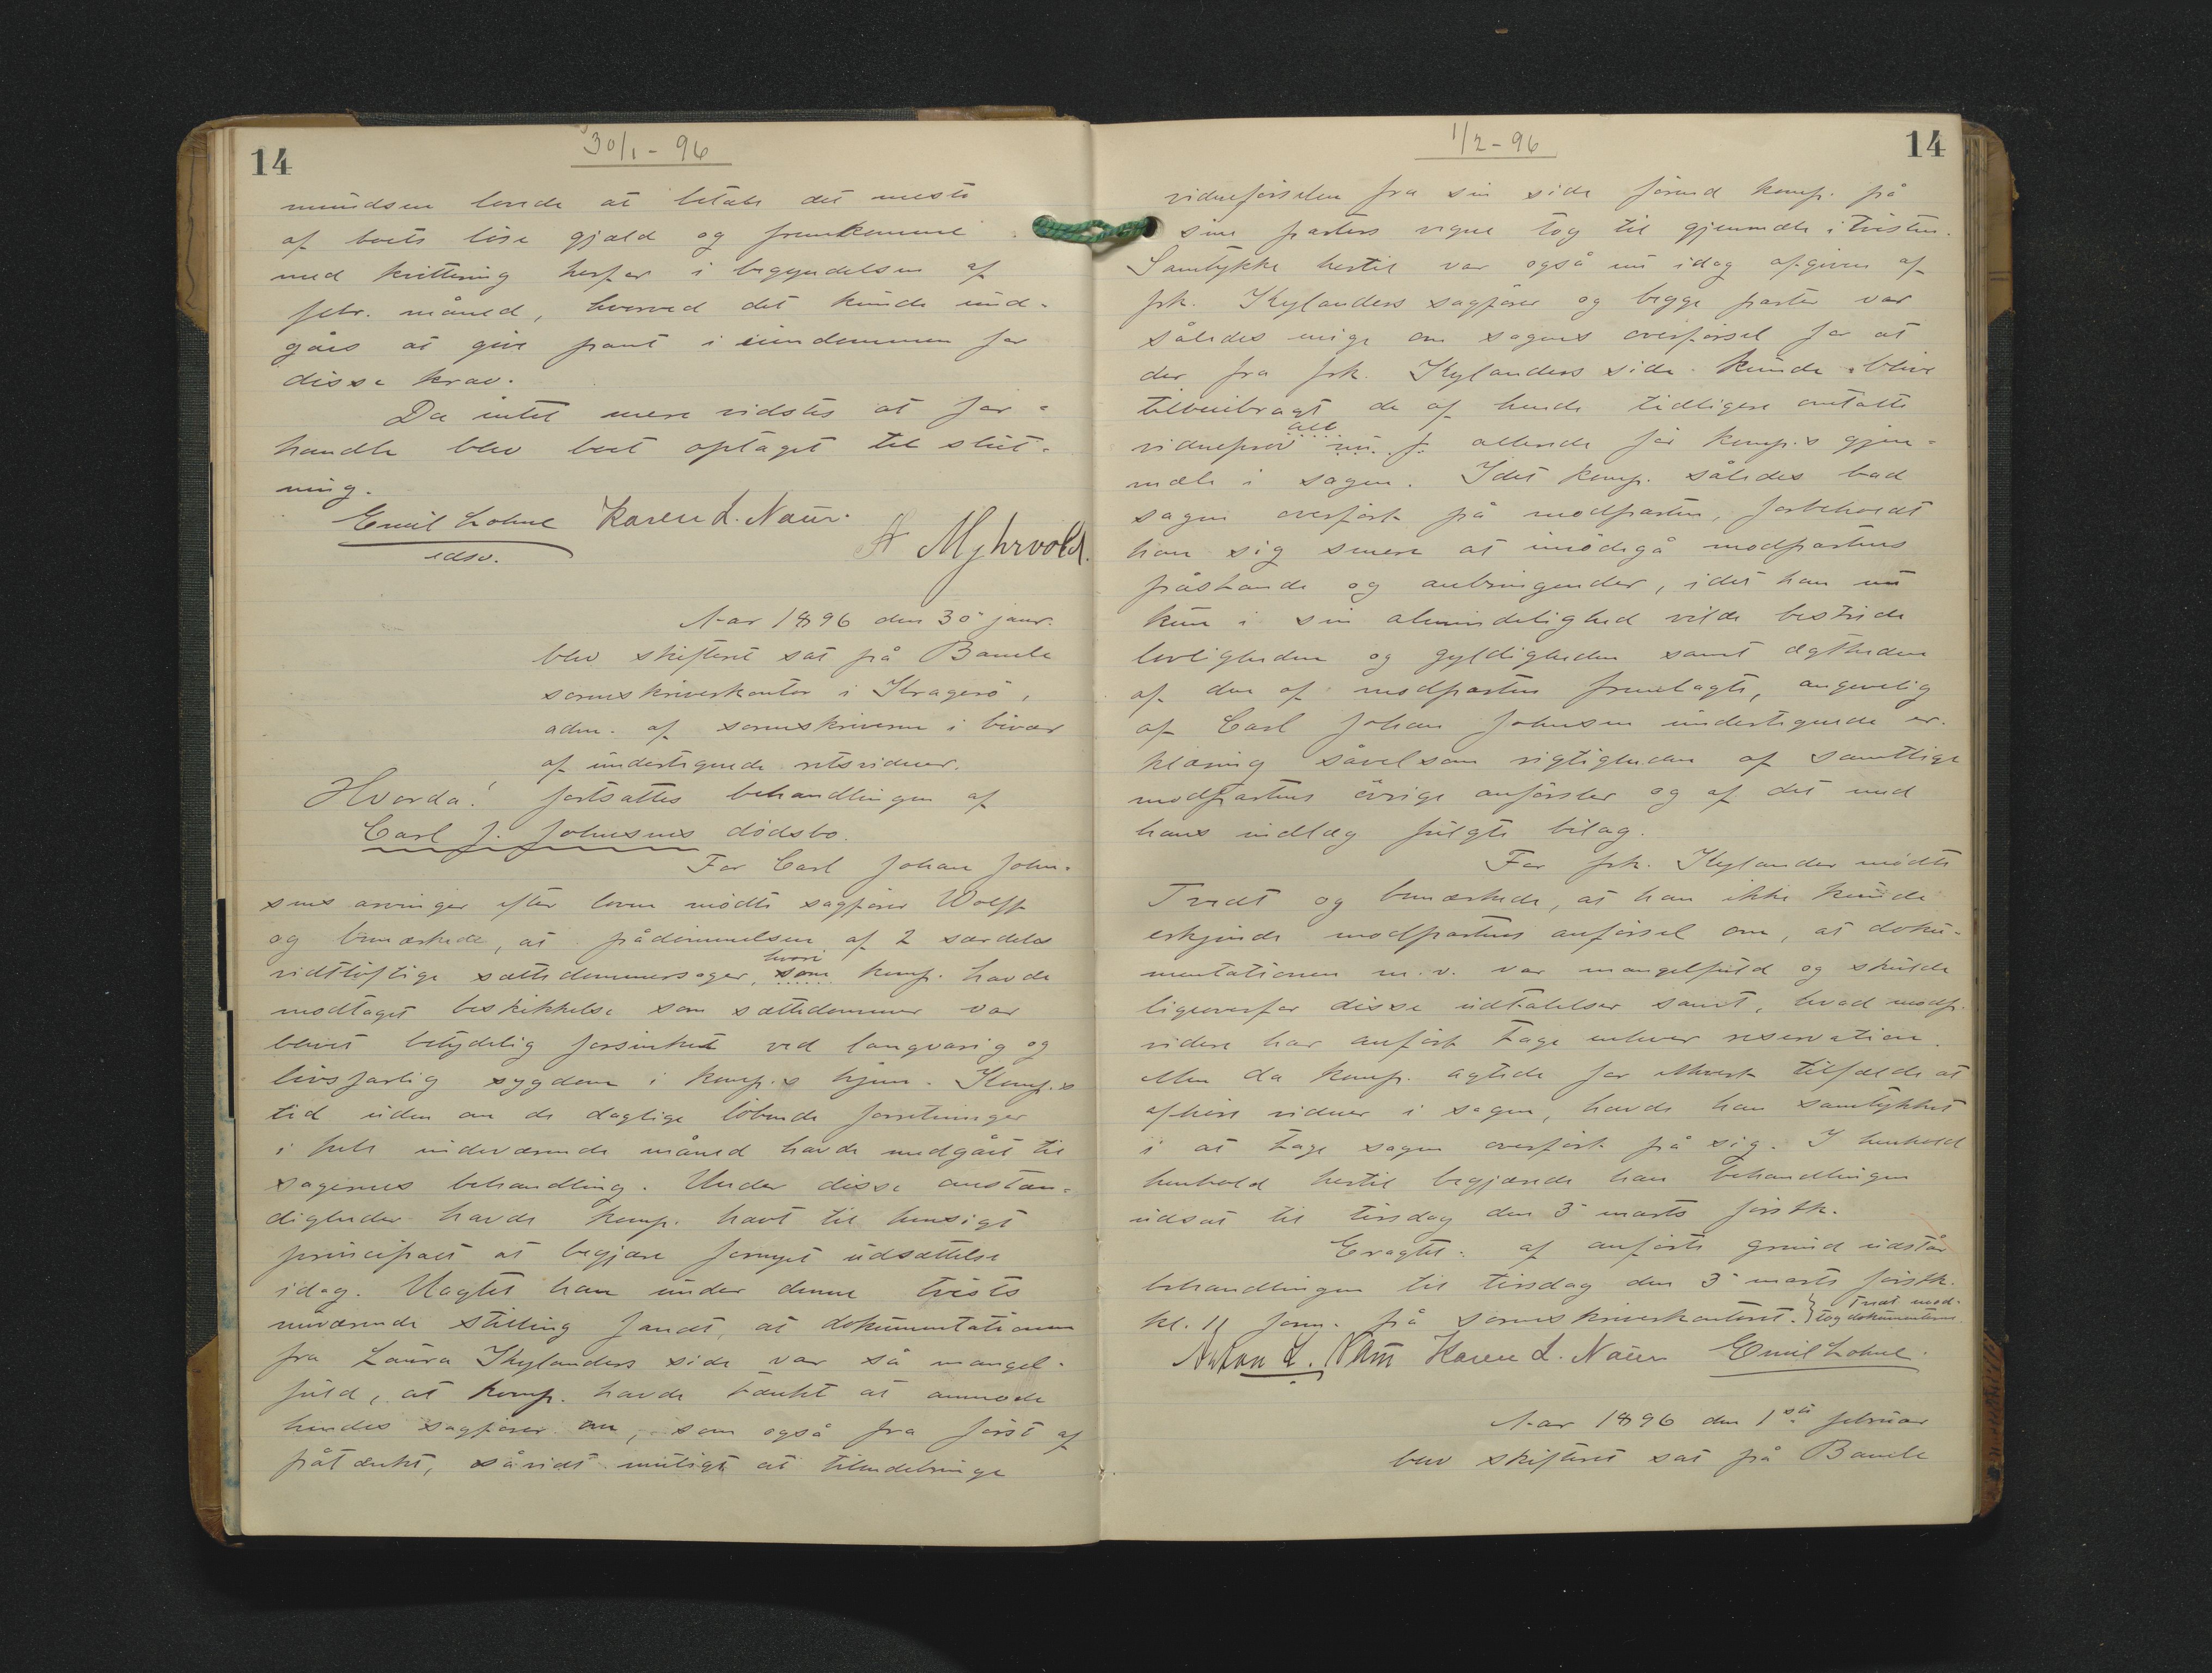 14
30/1 - 96
mundsen lovede at betale det meste
af boets løse gjæld og fremkomme
med kvittering herfor i begyndelsen af
febr. måned, hvorved det kunde und-
gåes at give pant i eiendommen for
disse krav.
Da intet mere vidstes at for-
handle blev boet optaget til slut-
ning.
Emil Lohne Karen L. Naur.
edsv.
A Myhrvold.
Aar 1896 den 30 janr.
blev skifteret sat på Bamble
sorenskriverkontor i Kragerö,
adm. af sorenskriveren i bivær
af undertegnede retsvidner.
Hvorda! fortsattes behandlingen af
Carl J. Johnsens dödsbo.
For Carl Johan John-
sens arvinger efter loven mödte sagförer Wolff
og bemærkede, at pådömmelsen af 2 særdeles
hvori
vidtlöftige sættedommersager, som komp. havde
modtaget beskikkelse som sættedommer var
blevet betydelig forsinket ved langvarig og
livsfarlig sygdom i komp.s hjem. Komp.s
tid uden om de daglige löbende forretninger
i hele indeværende måned havde medgået til
sagernes behandling. Under disse omstæn-
digheder havde komp. havt til hensigt
principalt at begjære fornyet udsættelse
idag. Uagtet han under denne tvists
nuværende stilling fandt, at dokumentationen
fra Laura Kylanders side var så mangel-
fuld, at komp. havde tænkt at anmode
hendes sagförer om, som også fra först af
påtænkt, såvidt muligt at tilendebringe
1/2 - 96
14
vidneförselen fra sin side förend komp. på
sine parters vegne tog til gjenmæle i tvisten.
Samtykke hertil var også nu idag afgiven af
frk. Kylanders sagförer og begge parter var
således enige om sagens overförsel for at
der fra frk. Kylanders side kunde blive
tilveiebragt de af hende tidligere omtalte
all
vidneprov nu f. allerede för komp.s gjen-
mæle i sagen. Idet komp. således bad
sagen overfört på modparten, forbeholdt
han sig senere at imödegå modpartens
påstande og anbringender, idet han nu
kun i sin almindelighed vilde bestride
lovligheden og gyldigheden samt ægtheden
af den af modparten fremlagte, angivelig
af Carl Johan Johnsen undertegnede er-
klæring såvelsom rigtigheden af samtlige
modpartens övrige anförsler og af det med
hans indlæg fulgte bilag.
For frk. Kylander mödte
Tvedt og bemærkede, at han ikke kunde
erkjende modpartens anförsel om, at doku-
mentationen m.v. var mangelfuld og skulde
ligeoverfor disse udtalelser samt, hvad modp.
videre har anfört tage enhver reservation.
Men da komp. agtede for ethvert tilfælde at
afhöre vidner i sagen, havde han samtykket
i at tage sagen overfört på sig. I henhold
henhold hertil begjærede han behandlingen
udsat til tirsdag den 3 marts förstk.
Eragtet: af anförte grund udstår
behandlingen til tirsdag den 3 marts förstk.
kl. 11 form. på sorenskriverkontoret. } Tvedt mod-
tog dokumenterne.
Anton L. Næss Karen L. Naur Emil Lohne.
Aar 1896 den 1ste februar
blev skifteret sat på Bamble